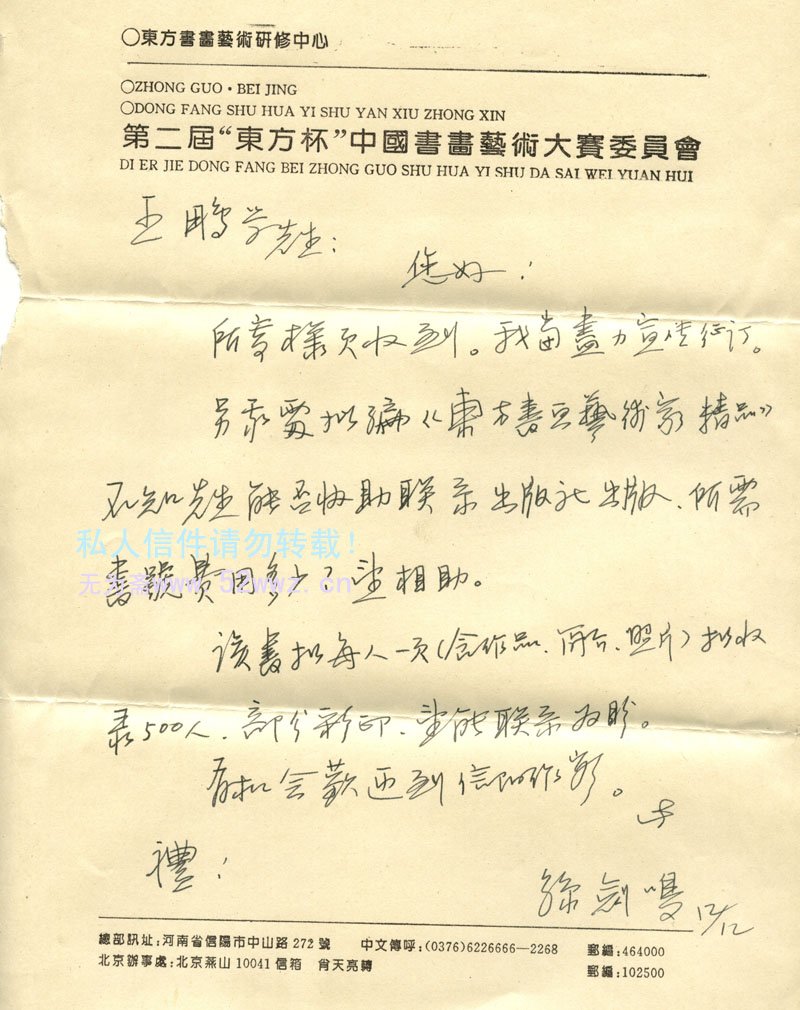 ○東方書畫藝術研修中心
○ZHONG GUO·BEI JING
○DONG FANG SHU HUA YI SHU YAN XIU ZHONG XIN
第二屆“東方杯”中國書畫藝術大賽委員會
DI ER JIE DONG FANG BEI ZHONG GUO SHU HUA YI SHU DA SAI WEI YUAN HUI
王鵬学先生：
您好！
所寄樣页收到。我当盡力宣传征订。
另我處拟編《東方書画藝術家精品》
不知先生能否协助联系出版社出版、所需
私人信件请勿转载！
書號費用多少？望相助。
www.52wwz.cn
該書拟每人一页（含作品、简介、照片）拟收
录500人、部分彩印、望能联系为盼。
有机会歡迎到信阳作客。
此
禮！
孫劍鳴 12/12
總部訊址：河南省信陽市中山路272號 中文傳呼：(0376)6226666—2268 郵編：464000
北京辦事處：北京燕山10041信箱 肖天亮轉 郵編：102500